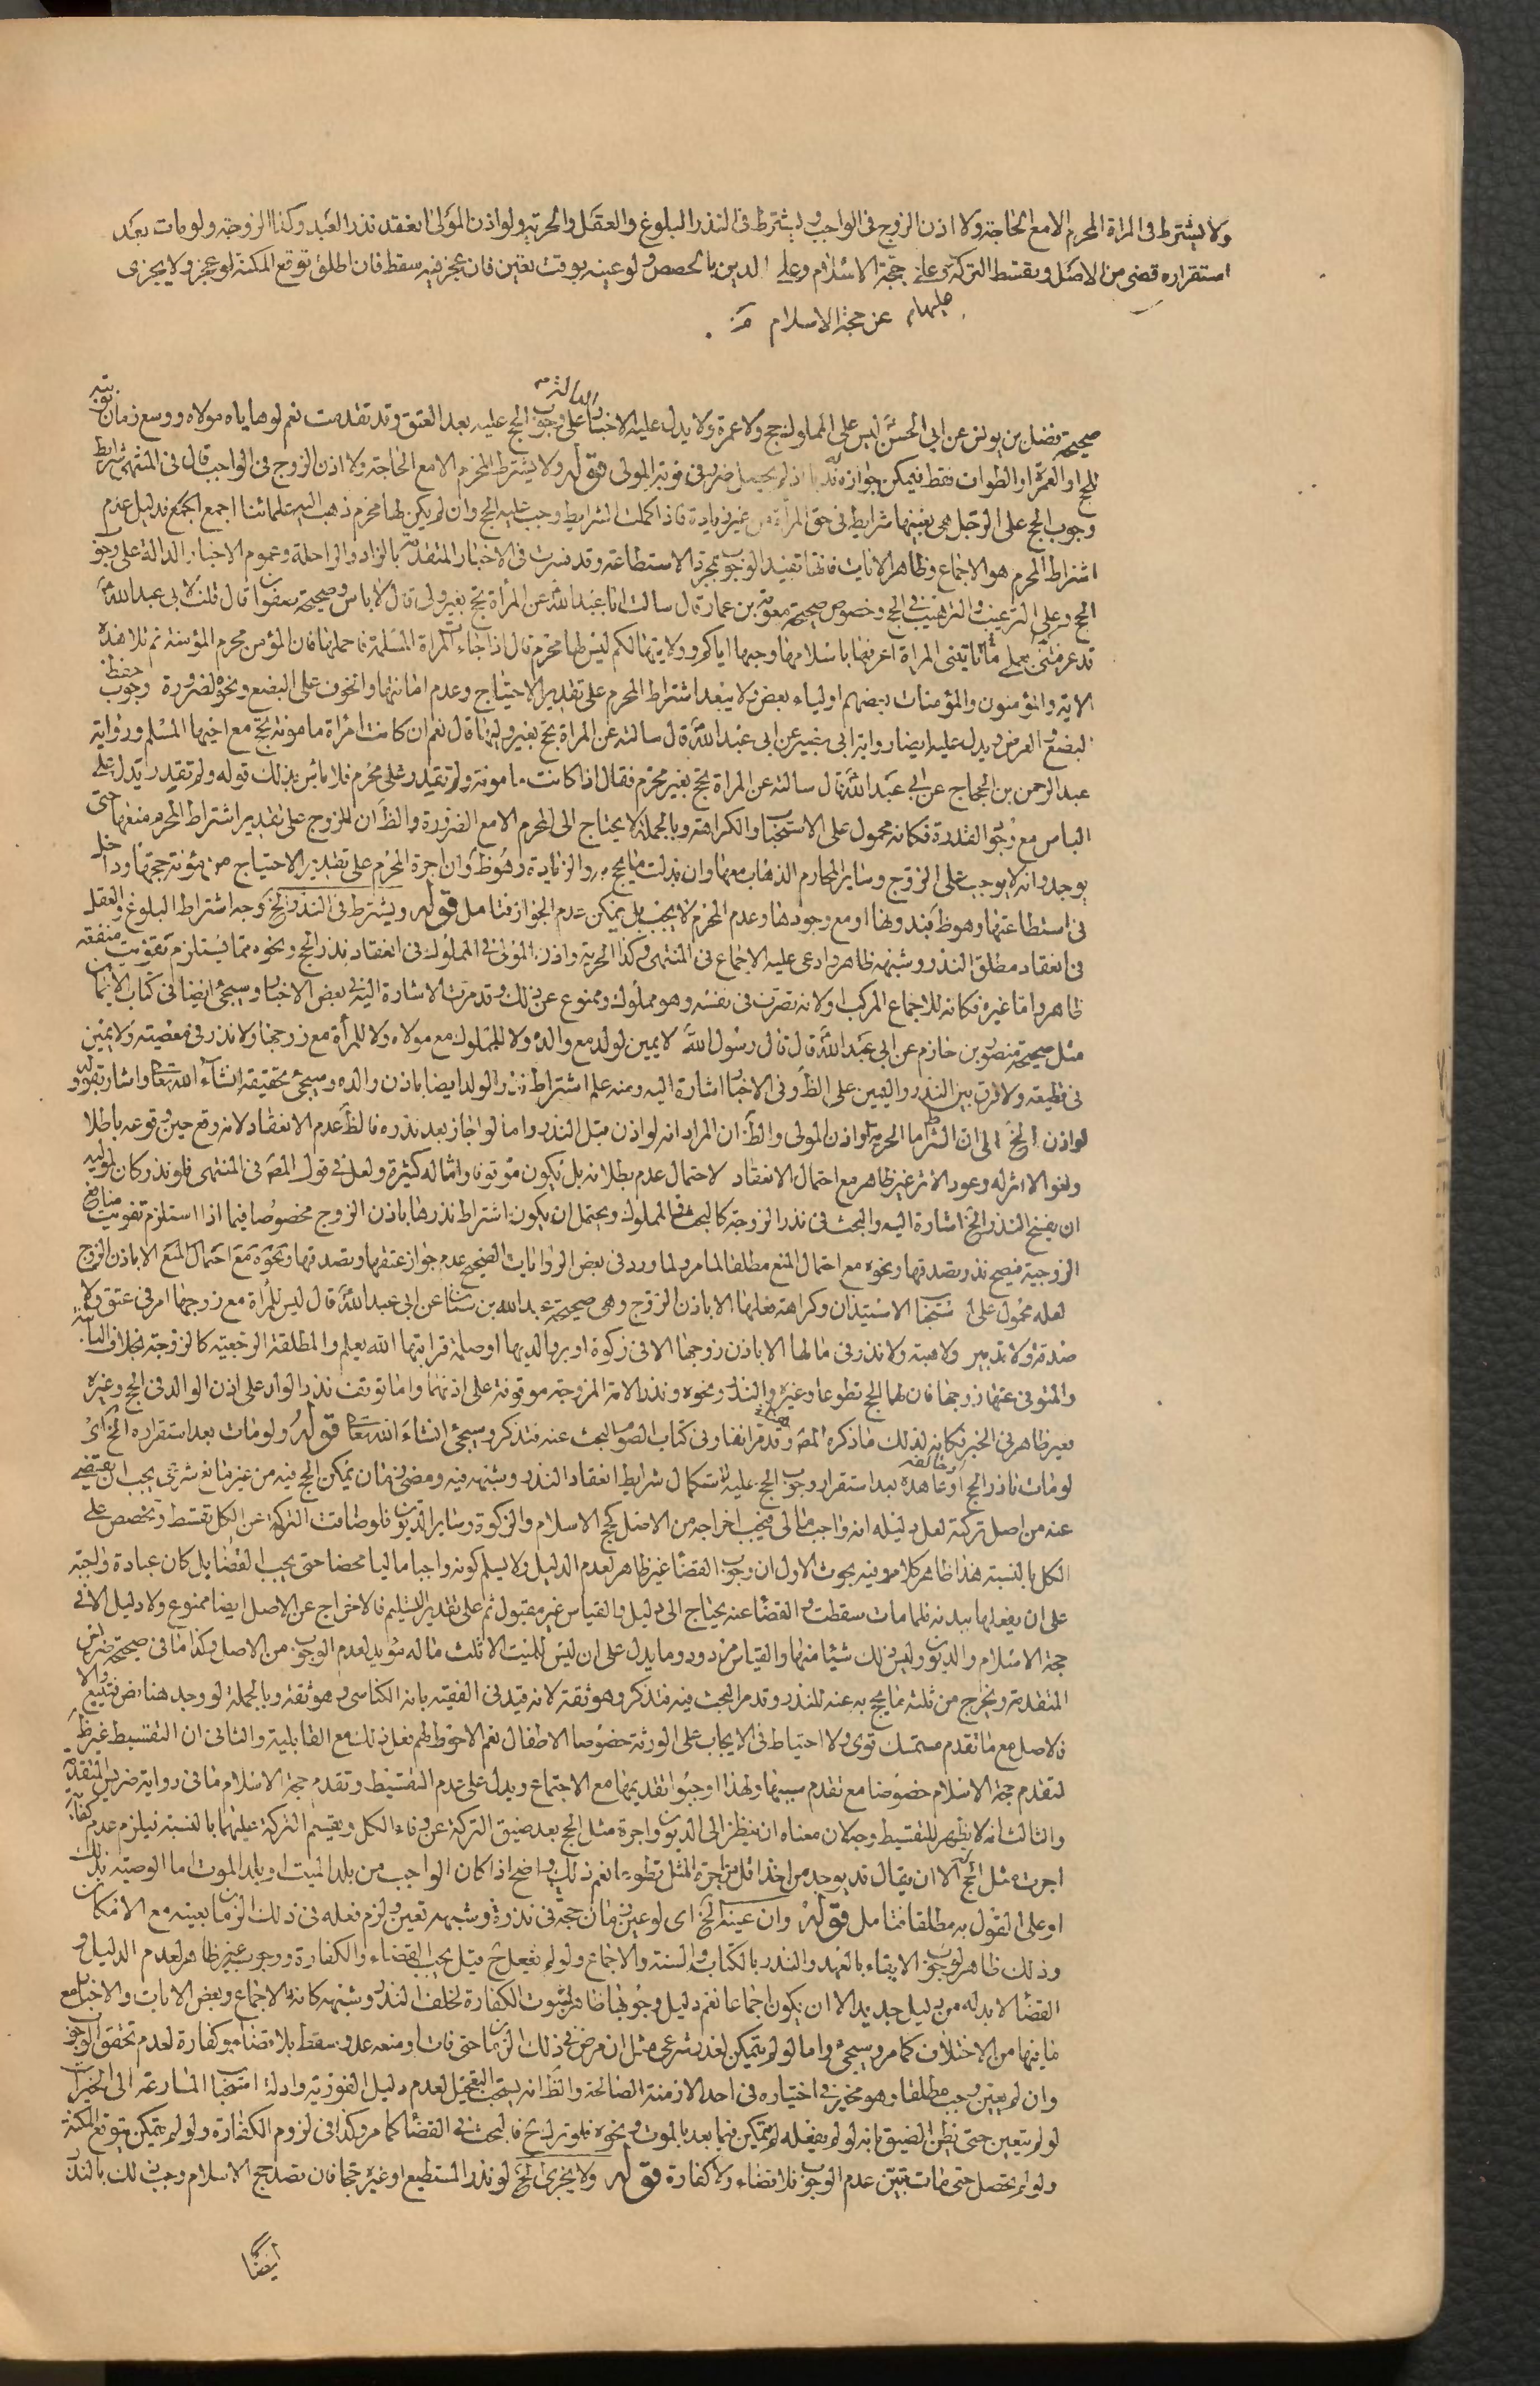 ولا يشترط فى المراة المحرم الا مع الحاجة ولا اذن الزوج فى الواجب ويشترط فى النذر البلوغ والعقل والحرية ولو اذن المولى انعقد نذر العبد وكذا الزوجة ولو مات بعد
استقراره قضى من الاصل ويقسط التركة عليه وعلى حجة الاسلام وعلى الدين بالحصص ولو عينه بوقت تعين فان عجز فيه سقط فان اطلق توقع المكنة لو عجز ولا يجزى
عن حجة الاسلام
صحيحة فضل بن يونس عن ابى الحسن ليس على المملوك حج ولا عمرة ولا يدل عليه الاخبار الدالة على وجوب الحج عليه بعد العتق وقد تقدمت نعم لو هاياه مولاه ووسع زمان نوبته
للحج او العمرة او الطواف فقط فيمكن جوازه اذ لم يحصل ضرر فى نوبة المولى قوله ولا يشترط المحرم الا مع الحاجة ولا اذن الزوج فى الواجب قال فى المنتهى شرايط
وجوب الحج على الرجل هى بعينها شرايط فى حق المراة من غير زيادة فاذا كملت الشرايط وجب عليها الحج وان لم يكن لها محرم ذهب اليه علمائنا اجمع فدليل عدم
اشتراط المحرم هو الاجماع وظاهر الايات فانها تفيد الوجوب بمجرد الاستطاعة وقد فسرت فى الاخبار المتقدمة بالزاد والراحلة وعموم الاخبار الدالة على وجوب
الحج وعلى الترغيب والترهيب فى الحج وخصوص صحيحة معوية بن عمار قال سالت ابا عبد الله عن المرأة تحج بغير ولى قال لا باس وصحيحة صفوان قال قلت لابى عبد الله
قد عرفتنى بعملى تاتينى المراة اعرفها باسلامها وحبها اياكم وولايتها لكم ليس لها محرم قال اذا جاءت المراة المسلمة فاحملها فان المؤمن محرم المؤمنة ثم تلا هذه
الاية والمؤمنون والمؤمنات بعضهم اولياء بعض ولا يبعد اشتراط المحرم على تقدير الاحتياج وعدم امانتها والخوف على البضع ونحوه لضرورة وجوب حفظ
البضع والعرض ويدل عليه ايضا رواية ابى بصير عن ابى عبد الله قال سالته عن المراة تحج بغير وليها قال نعم ان كانت امراة مامونة تحج مع اخيها المسلم ورواية
عبد الرحمن بن الحجاج عن ابى عبد الله قال سالته عن المراة تحج بغير محرم فقال اذا كانت مامونة ولم تقدر على محرم فلا باس بذلك قوله ولم تقدر يدل على
الباس مع وجود القدرة فكانه محمول على الاستحباب والكراهة وبالجملة لا يحتاج الى المحرم الا مع الضرورة والظ ان للزوج على تقدير اشتراط المحرم منعها حتى
يوجد وانه لا يوجب على الزوج وساير المحارم الذهاب معها وان بذلت ما يحج به والزيادة وهو ظ وان اجرة المحرم على تقدير الاحتياج من مؤنة حجتها وداخل
فى استطاعتها وهو ظ فبدونها او مع وجودها وعدم المحرم لا يجب بل يمكن عدم الجواز فتامل قوله ويشترط فى النذر الخ وجه اشتراط البلوغ والعقل
فى انعقاد مطلق النذر وشبهه ظاهر وادعى عليه الاجماع فى المنتهى وكذا الحرية واذن المولى فى المملوك فى انعقاد نذر الحج ونحوه مما يستلزم تفويت منفعة
ظاهر واما غيره فكانه للاجماع المركب او لانه تصرف فى نفسه وهو مملوك وممنوع عن ذلك وقد مرت الاشارة اليه فى بعض الاخبار وسيجئ ايضا فى كتاب الايمان
مثل صحيحة منصور بن حازم عن ابى عبد الله قال قال رسول الله لا يمين لولد مع والده ولا للمملوك مع مولاه ولا للمرأة مع زوجها ولا نذر فى معصية ولا يمين
فى قطيعة ولا فرق بين النذر واليمين على الظ وفى الاخبار اشارة اليه ومنه علم اشتراط نذر الولد ايضا باذن والده وسيجئ تحقيقه انشاء الله تعا واشار بقوله ولو
لو اذن الخ الى ان الشرط اما الحرية او اذن المولى والظ ان المراد انه لو اذن قبل النذر واما لو اجاز بعد نذره فالظ عدم الانعقاد لانه وقع حين وقوعه باطلا
ولغوا لا اثر له وعود الاثر غير ظاهر مع احتمال الانعقاد لاحتمال عدم بطلانه بل يكون موقوفا وامثاله كثيرة ولعل فى قول المص فى المنتهى فلو نذر كان لمولاه
ان يفسخ النذر الخ اشارة اليه والبحث فى نذر الزوجة كالبحث فى المملوك ويحتمل ان يكون اشتراط نذرها باذن الزوج مخصوصا فيما اذا استلزم تفويت منافع
الزوجية فيصح نذر بصدقها ونحوه مع احتمال المنع مطلقا لما مر ولما ورد فى بعض الروايات الصحيحة عدم جواز عتقها وتصدقها ونحوه مع احتمال المنع الا باذن الزوج
لعله محمول على استحباب الاستيذان وكراهة فعلها الا باذن الزوج وهى صحيحة عبد الله بن سنان عن ابى عبد الله قال ليس للمرأة مع زوجها امر فى عتق ولا
صدقة ولا تدبير ولا هبة ولا نذر فى مالها الا باذن زوجها الا فى زكوة او بر والديها او صلة قرابتها الله يعلم والمطلقة الرجعية كالزوجة بخلاف البائنة
والمتوفى عنها زوجها فان لها الحج تطوعا وغيره والنذر ونحوه ونذر الامة المزوجة موقوفة على اذنهما واما توقف نذر الولد على اذن الوالد فى الحج وغيره
فغير ظاهر فى الخبر فكانه لذلك ما ذكره المص وقد مر انفا وفى كتاب الصوم البحث عنه فتذكر وسيجئ انشاء الله تعا قوله ولو مات بعد استقراره الخ اى
لو مات ناذر الحج او عاهده بعد استقرار وجوب الحج عليه باستكمال شرايط انعقاد النذر وشبهه فيه ومضى زمان يمكن الحج فيه من غير مانع شرعى يجب ان يقضى
عنه من اصل تركته لعل دليله انه واجب مالى فيجب اخراجه من الاصل كحج الاسلام والزكوة وساير الديون فلو ضاقت التركة عن الكل تقسط وتخصص على
الكل بالنسبة هذا ظاهر كلامه وفيه بحوث الاول ان وجوب القضا غير ظاهر لعدم الدليل ولا يسلم كونه واجبا ماليا محضا حتى يجب القضا بل كان عبادة واجبة
على ان يفعلها ببدنه فلما مات سقطت والقضا عنه يحتاج الى دليل والقياس غير مقبول ثم على تقدير التسليم فالاخراج عن الاصل ايضا ممنوع ولا دليل الا فى
حجة الاسلام والديون وليس ذلك شيئا منها والقياس مردود وما يدل على ان ليس للميت الا ثلث ماله مؤيد لعدم الوجوب من الاصل وكذا ما فى صحيحة ضريس
المتقدمة ويخرج من ثلثه ما يحج به عنه للنذر وقد مر البحث فيه فتذكر وهو ثقة لانه قيد فى الفقيه بانه الكناسى وهو ثقة وبالجملة لو وجد هنا نص فيتبع والا
فالاصل مع ما تقدم متمسك قوى ولا احتياط فى الايجاب على الورثة خصوصا الاطفال نعم الاحوط لهم فعل ذلك مع القابلية والثانى ان التقسيط غير ظ
لتقدم حجة الاسلام خصوصا مع تقدم سببها ولهذا اوجبوا تقديمها مع الاجتماع ويدل على عدم التقسيط وتقدم حجة الاسلام ما فى رواية ضريس المتقدمة
والثالث انه لا يظهر للتقسيط وجه لان معناه ان ينظر الى الديون واجرة مثل الحج بعد ضيق التركة عن وفاء الكل ويقسم التركة عليهما بالنسبة فيلزم عدم كفاية
اجرت مثل الحج الا ان يقال قد يوجد من اخذ اقل من اجرة المثل تطوعا نعم ذلك واضح اذا كان الواجب من بلد الميت او بلد الموت اما الوصية بذلك
او على القول به مطلقا فتامل قوله وان عينه الخ اى لو عين زمان حجة فى نذره وشبهه تعين ولزم فعله فى ذلك الزمان بعينه مع الامكان
وذلك ظاهر لوجوب الايفاء بالعهد والنذر بالكتاب والسنة والاجماع ولو لم يفعل ح قيل يجب القضاء والكفارة ووجوبه غير ظاهر لعدم الدليل و
القضا لا بد له من دليل جديد الا ان يكون اجماعا نعم دليل وجوبها ظاهر لثبوت الكفارة لخلف النذر وشبهه كانه بالاجماع وبعض الايات والاخبار مع
ما فيها من الاختلاف كما مر وسيجئ واما لو لم يتمكن لعذر شرعى مثل ان مرض فى ذلك الزمان حتى فات او منعه عدو سقط بلا قضاء وكفارة لعدم تحقق الوجوب
وان لم يعين وجب مطلقا وهو مخير فى اختياره فى احد الازمنة الصالحة والظ انه يستحب التعجيل لعدم دليل الفورية وادلة استحباب المسارعة الى الخيرات
لو لم يتعين حتى يظن الضيق بانه لو لم يفعله لم يتمكن فيما بعد بالموت ونحوه فلو ترك ح فالبحث فى القضا كما مر وكذا فى لزوم الكفارة ولو لم يتمكن يتوقع المكنة
ولو لم يحصل حتى مات تبين عدم الوجوب فلا قضاء ولا كفارة قوله ولا يجزى الخ لو نذر المستطيع او غيره حجا فان قصد حج الاسلام وجب ذلك بالنذر
ايضا